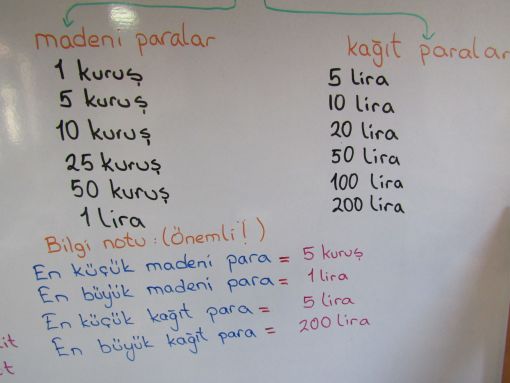 madeni paralar
1 kuruş
5 kuruş
10 kuruş
25 kuruş
50 kuruş
1 lira
kağıt paralar
5 lira
10 lira
20 lira
50 lira
100 lira
200 lira
Bilgi notu: (Önemli!)
En küçük madeni para = 5 kuruş
En büyük madeni para = 1 lira
En küçük kağıt para = 5 lira
En büyük kağıt para = 200 lira